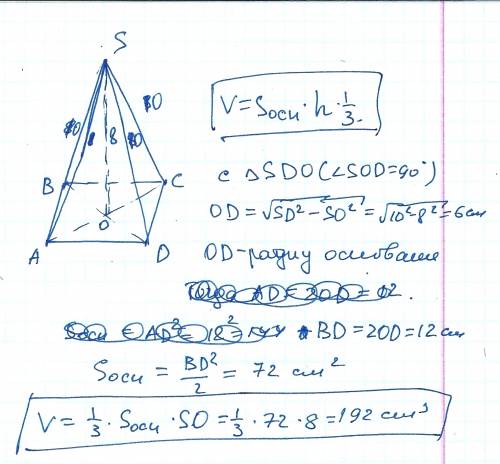 S
10
10
8
10
B
C
O
A
D
V = Sосн · h · 1/3.
с △SDO (∠SOD = 90°)
OD = √SD² − SO² = √10² − 8² = 6 см
OD - радиу основание
BD = 2OD = 12 см
Sосн = BD²/2 = 72 см²
V = 1/3 · Sосн · SO = 1/3 · 72 · 8 = 192 см³